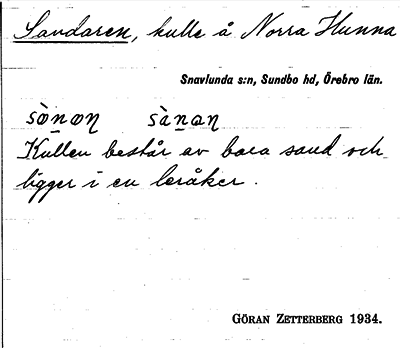 Sandaren, kulle å Norra Hunna
Snavlunda s:n, Sundbo hd, Örebro län.
sò̀nøn sànan
Kullen består av bara sand och
ligger i en leråker.
GÖRAN ZETTERBERG 1934.